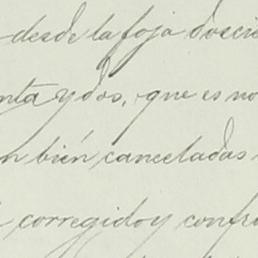 desde la foja doscie
nta y dos, que es no
n bién canceladas
corregido y confro